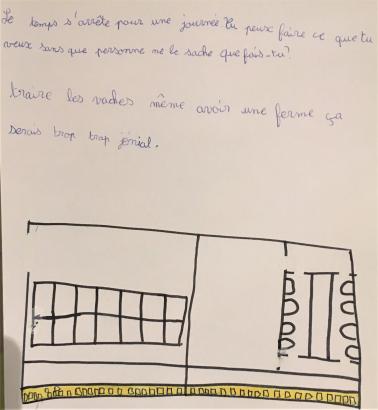 Le temps s'arrête pour une journée tu peux faire ce que tu
veux sans que personne ne le sache que fais-tu?
traire les vaches même avoir une ferme ça
serais trop trop jénial.